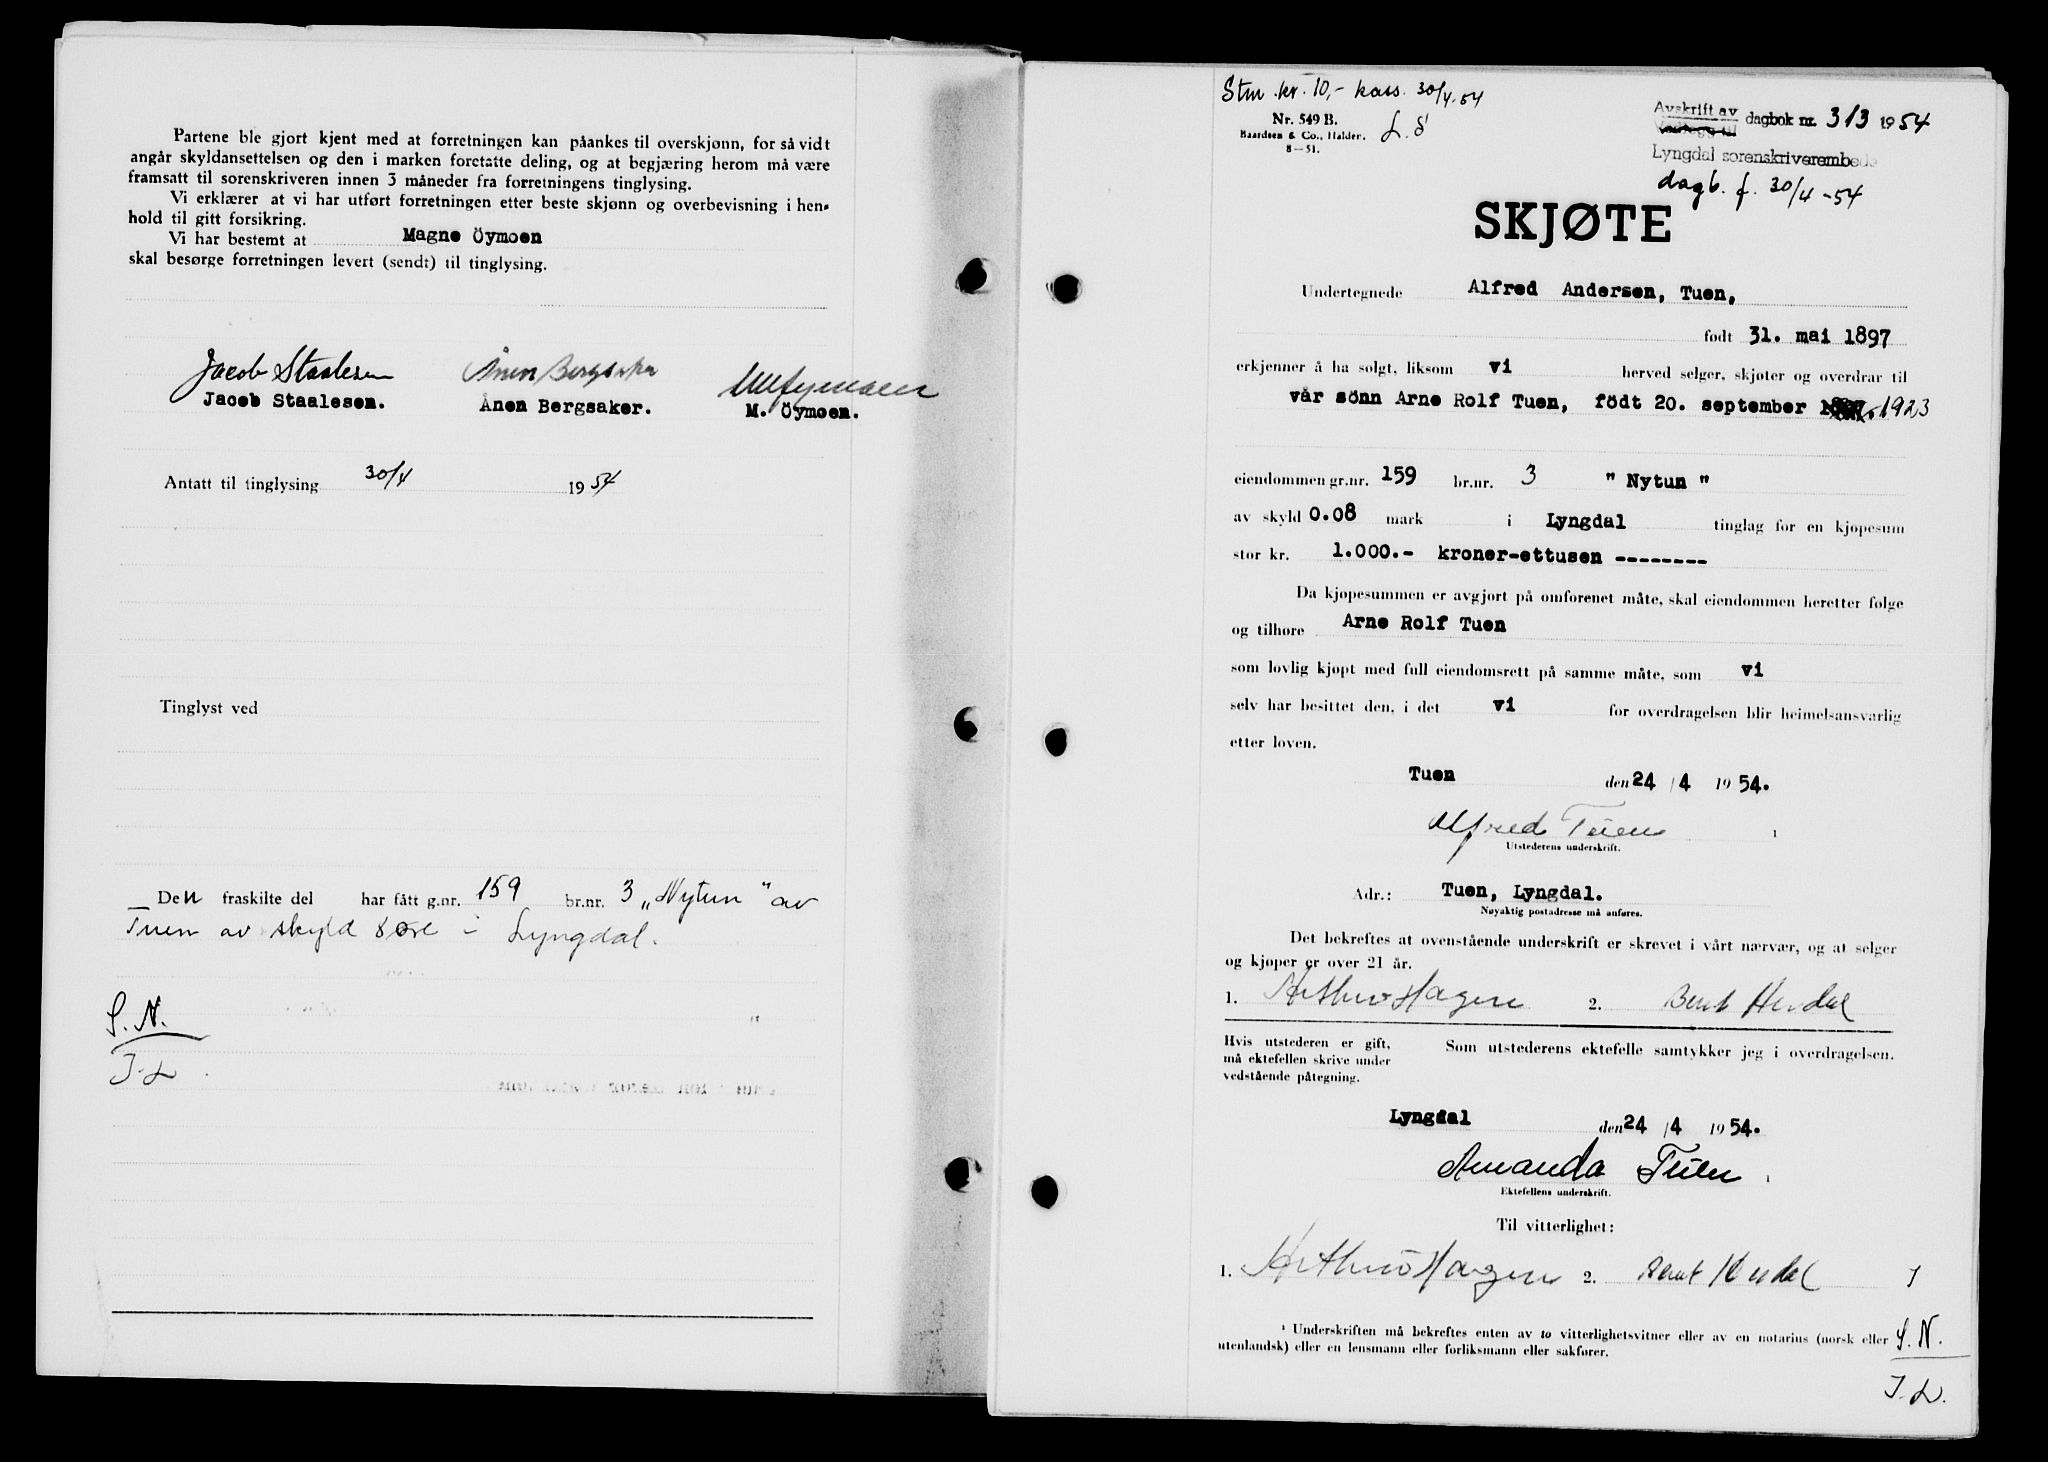 Partene ble gjort kjent med at forretningen kan påankes til overskjønn, for så vidt
angår skyldansettelsen og den i marken foretatte deling, og at begjæring herom må være
framsatt til sorenskriveren innen 3 måneder fra forretningens tinglysing.
Vi erklærer at vi har utført forretningen etter beste skjønn og overbevisning i hen-
hold til gitt forsikring.
Vi har bestemt at Magne Öymoen
skal besørge forretningen levert (sendt) til tinglysing.
Jacob Staalesen Ånen Bergsaker MÖymoen
Jacob Staalesen. Ånen Bergsaker. M. Öymoen.
Antatt til tinglysing 30/4 1954
Tinglyst ved
Den fraskilte del har fått g.nr. 159 br.nr. 3 „Nytun" av
Tuen av skyld 8 øre i Lyngdal.
S. N.
J. L.
Stm .kr. 10,- kass. 30/4-54
Nr. 549 B.
Baardsen & Co., Halden.
8—51.
L. S
Avskrift av dagbok nr. 313 1954
Vedlegg til
Lyngdal sorenskriverembede
dagb. f. 30/4 -54
SKJØTE
Undertegnede Alfred Andersen, Tuen,
født 31. mai 1897
erkjenner å ha solgt, liksom vi herved selger, skjøter og overdrar til
vår sönn Arne Rolf Tuen, födt 20. september 1897. 1923
eiendommen gr.nr. 159 br.nr. 3 " Nytun "
av skyld 0.08 mark i Lyngdal tinglag for en kjøpesum
stor kr. 1.000.- kroner-ettusen --------
Da kjøpesummen er avgjort på omforenet måte, skal eiendommen heretter følge
og tilhøre Arne Rolf Tuen
som lovlig kjøpt med full eiendomsrett på samme måte, som vi
selv har besittet den, i det vi for overdragelsen blir heimelsansvarlig
etter loven.
Tuen den 24 / 4 1954.
Alfred Tuen 1
Utstederens underskrift.
Adr.: Tuen, Lyngdal.
Nøyaktig postadresse må anføres.
Det bekreftes at ovenstående underskrift er skrevet i vårt nærvær, og at selger
og kjøper er over 21 år.
1. Arthur Hagen 2. Berit Herdal
Hvis utstederen er gift,
må ektefellen skrive under
vedstående påtegning.
Som utstederens ektefelle samtykker jeg i overdragelsen.
Lyngdal den 24 / 4 1954.
Amanda Tuen 1
Ektefellens underskrift.
Til vitterlighet:
1. Arthur Hagen 2. Berit Herdal 1
¹ Underskriften må bekreftes enten av to vitterlighetsvitner eller av en notarius (norsk eller
utenlandsk) eller en lensmann eller forliksmann eller sakfører.
S. N.
J. L.